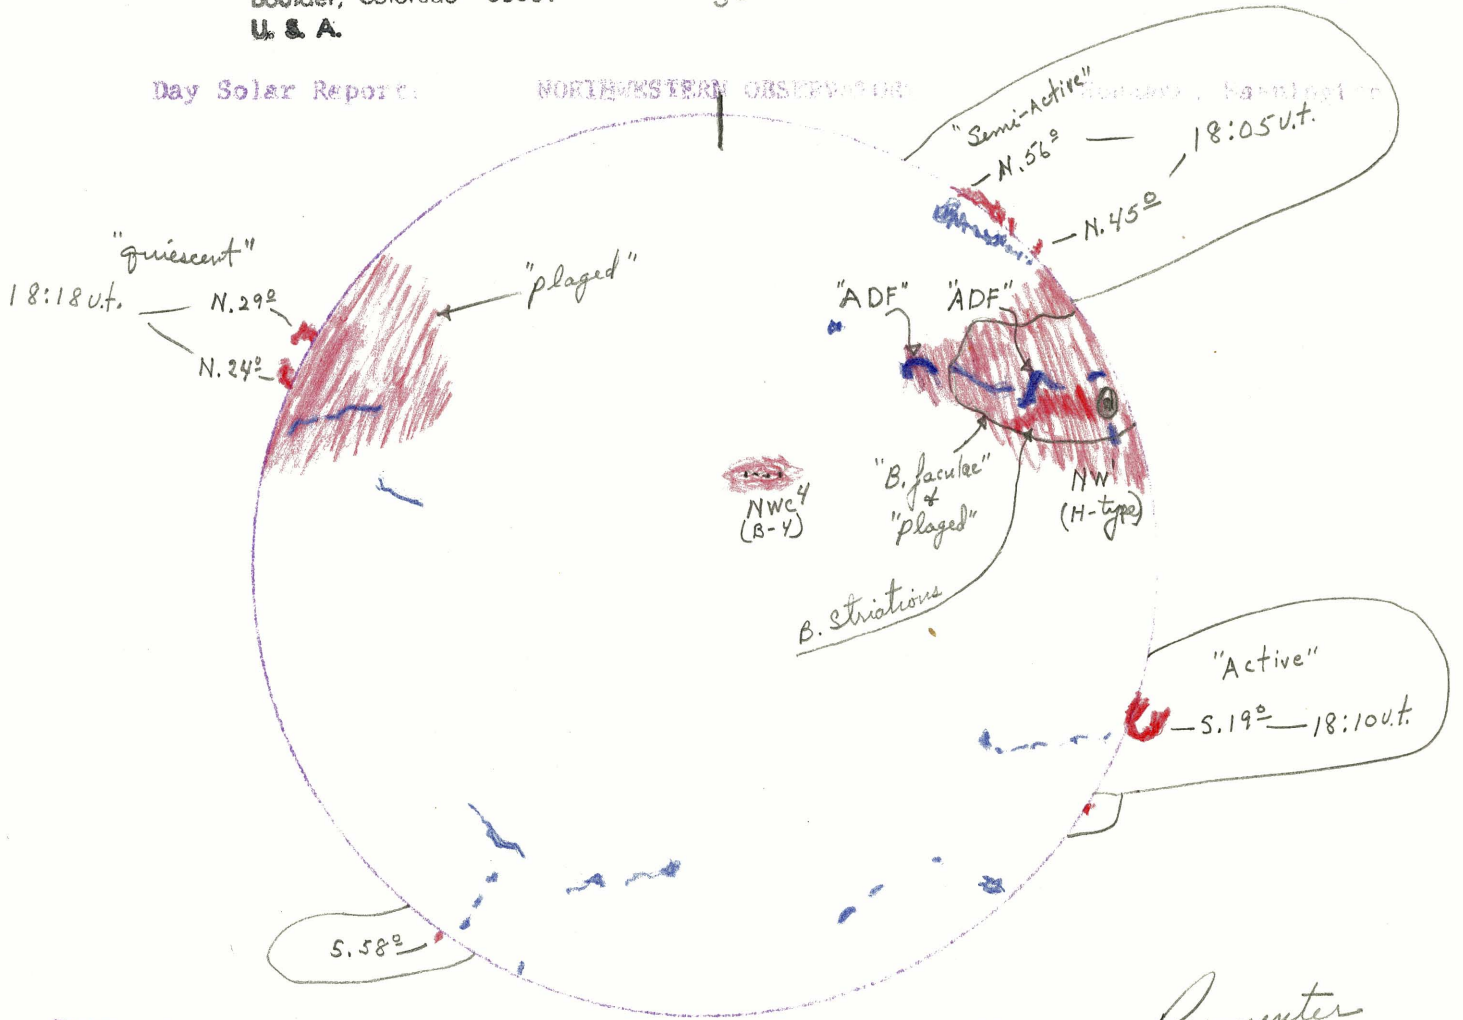 Boulder, Colorado
U. S. A.
Day Solar Report
NORTHWESTERN OBSERVATORY
"Semi-Active"
N.56º
18:05 U.t.
N.45º
"quiescent"
18:18 U.t.
N.29º
N.24º
"plaged"
"ADF"
"ADF"
"B. faculae"
&
"plaged"
NW'
(H-type)
NWc4
(B-4)
B. Striations
"Active"
S.19º
18:10 U.t.
S.58º